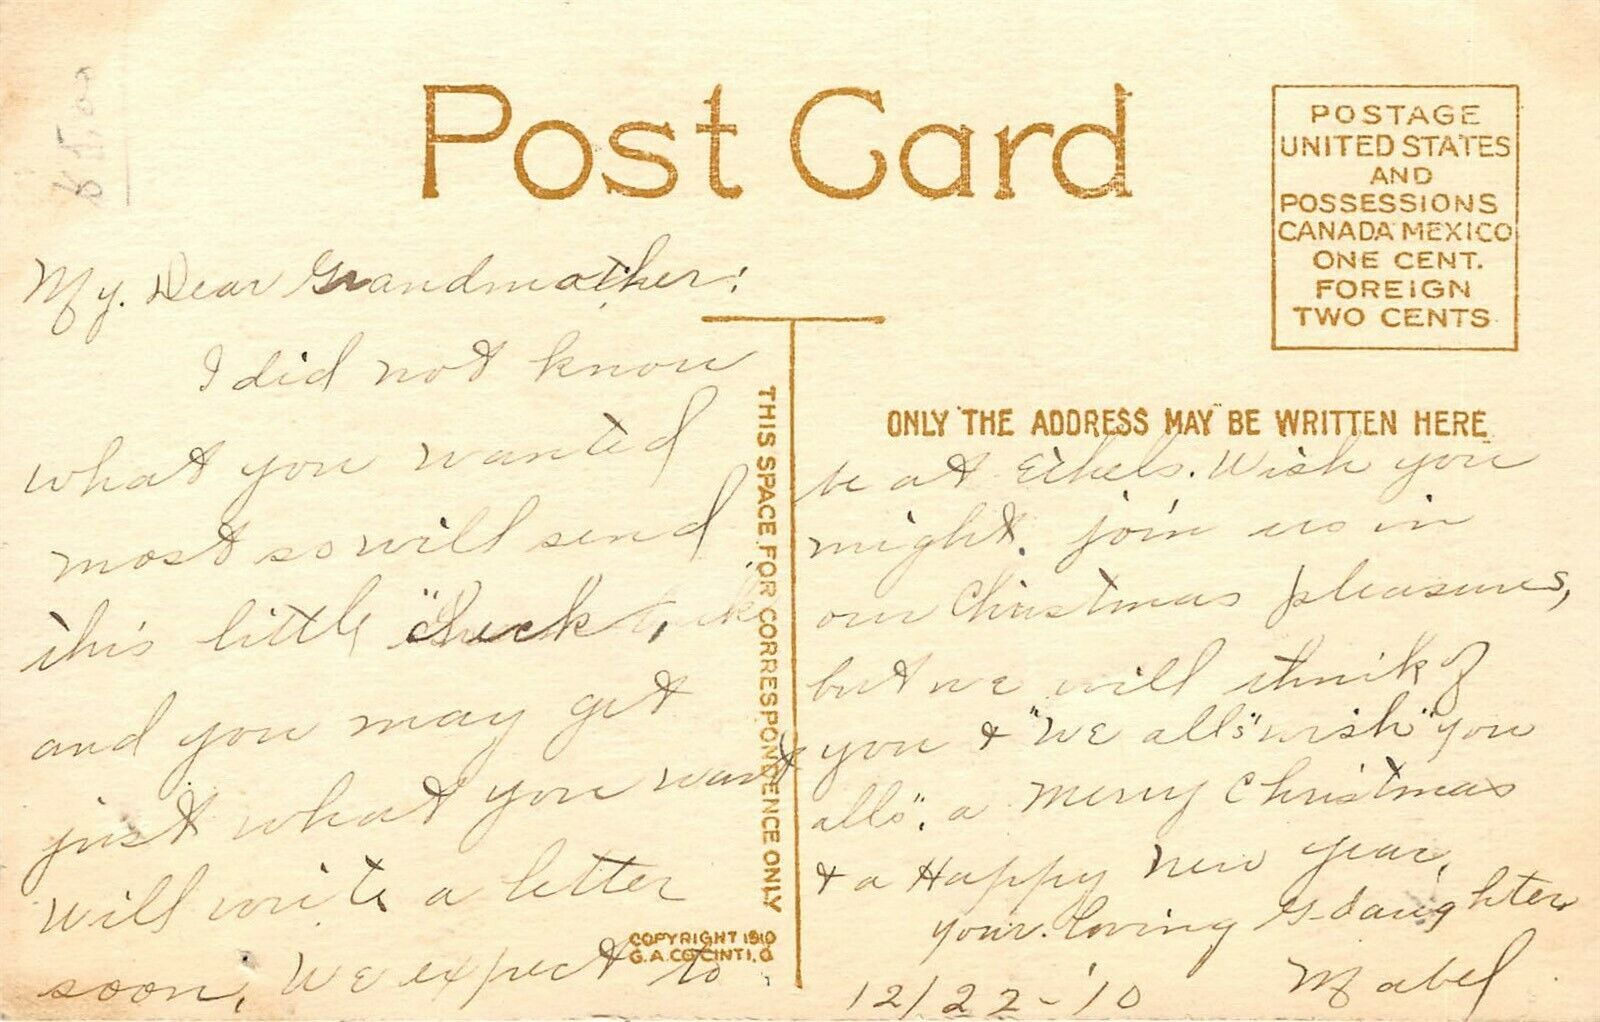 Post Card
POSTAGE
UNITED STATES
AND
POSSESSIONS
CANADA MEXICO
ONE CENT.
FOREIGN
TWO CENTS
My. Dear Grandmother:
I did not know
what you wanted
most so will send
this little "check
and you may get
just what you want
will write a letter
soon, We expect to
THIS SPACE FOR CORRESPONDENCE ONLY
COPYRIGHT 1910
G.A.CO CINTI, O.
ONLY THE ADDRESS MAY BE WRITTEN HERE
be at Ethels. Wish you
might. join us in
our Christmas pleasures,
but we will think of
you & "We alls" wish "you
alls", a Merry Christmas
& a Happy New Year,
your. loving G-daughter
Mabel
12/22-'10